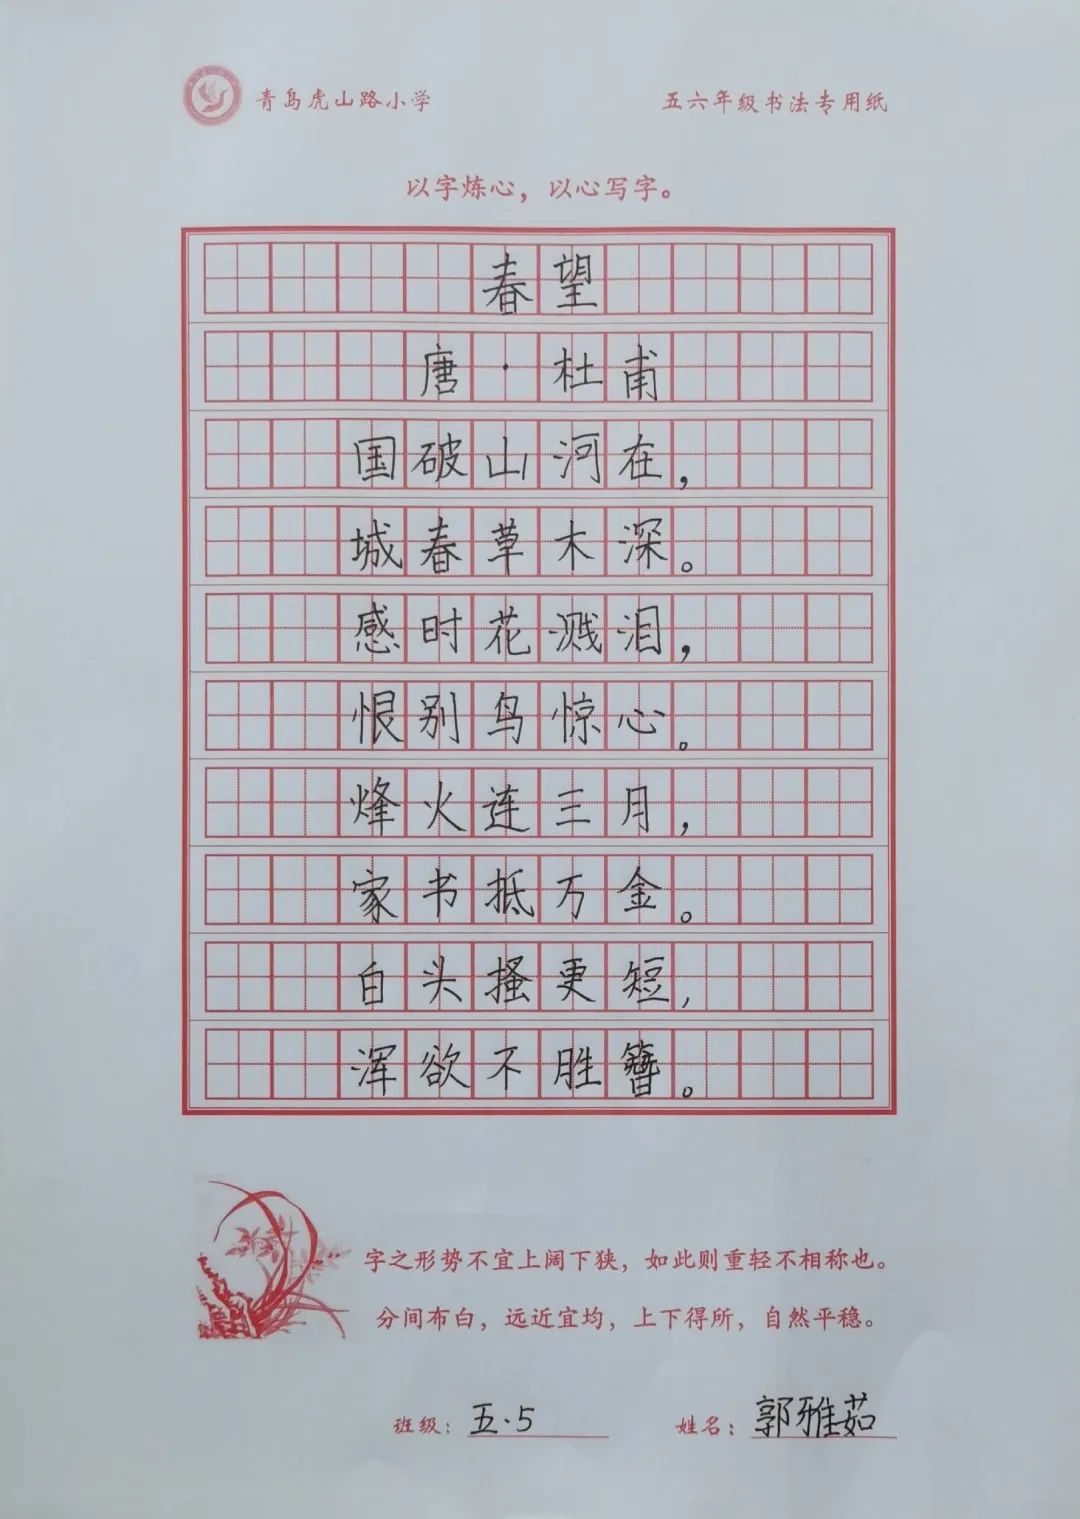 青岛虎山路小学
五六年级书法专用纸
以字炼心，以心写字。
春望
唐·杜甫
国破山河在，
城春草木深。
感时花溅泪，
恨别鸟惊心。
烽火连三月，
家书抵万金。
白头搔更短，
浑欲不胜簪。
字之形势不宜上阔下狭，如此则重轻不相称也。
分间布白，远近宜均，上下得所，自然平稳。
班级：五·5
姓名：郭雅茹